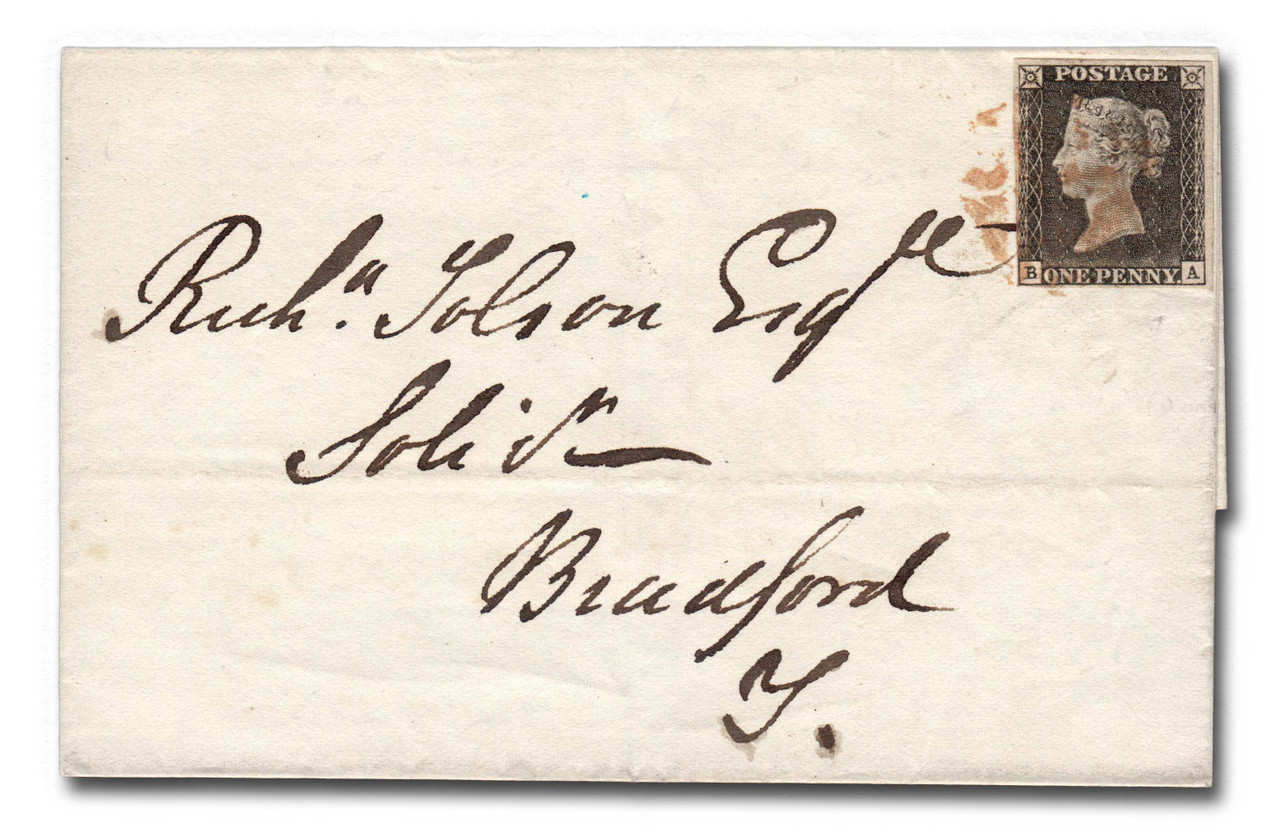 POSTAGE
B ONE PENNY. A
Richd. Tolson Esqre
Solicr
Bradford
Y.